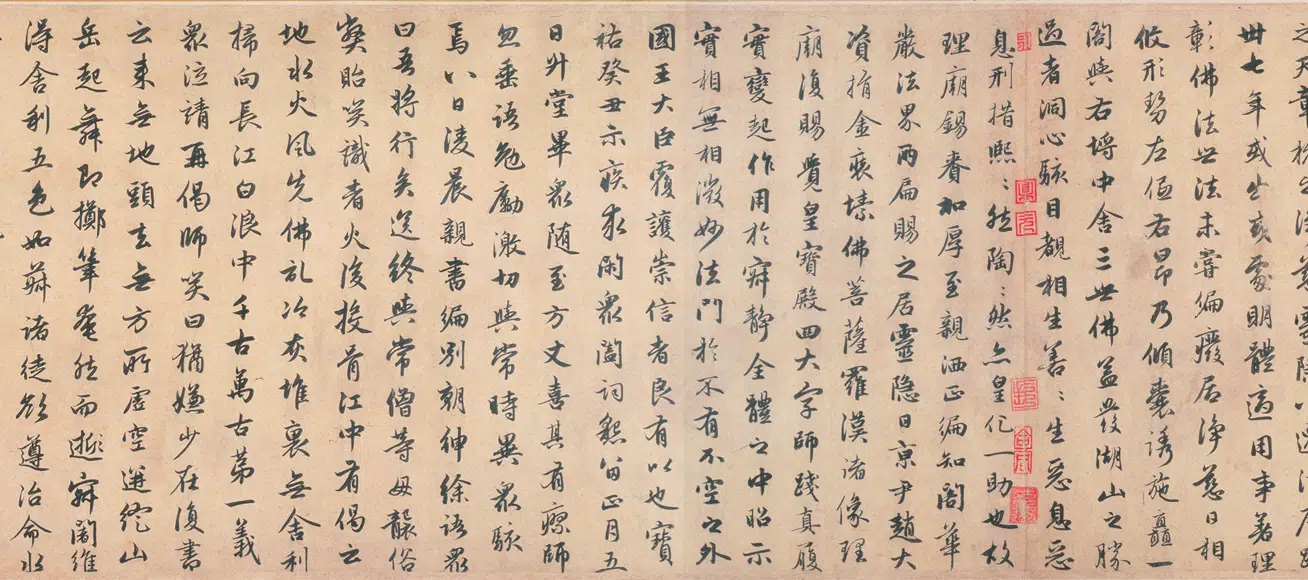 卌七年或出或處明體適用事著理
彰佛法世法未嘗偏癈居淨慈日相
攸形勢左伍右昂乃傾橐誘施矗一
閣與右埒中舍三世佛益發湖山之勝
過者洞心駭目覩相生善〻生惡息惡
息刑措熙〻然陶〻然亦皇化一助也故
理廟錫賚加厚至親洒正編知閣華
嚴法界兩扁賜之居靈隐日京尹趙大
資捐金裒塐佛菩薩羅漢諸像理
廟復賜覺皇寶殿四大字師踐真履
實變起作用於寂静全體之中昭示
實相無相微妙法門於不有不空之外
國王大臣覆護崇信者良有以也寶
祐癸丑示疾求閑衆闔詞懇留正月五
日升堂畢衆随至方丈喜其有瘳師
忽垂語勉勵激切與常時異衆駭
焉八日淩晨親書編別朝紳徐語衆
曰吾將行矣送終與常僧等毋襲俗
獘貽咲識者火後投骨江中有偈云
地水火風先佛記冷灰堆裏無舍利
掃向長江白浪中千古萬古第一義
衆泣請再偈師咲曰猶嫌少在復書
云来無地頭去無方所虛空迸綻山
岳起舞即擲筆奄然而逝寂闍維
得舍利五色如菽諸徒欲遵治命水